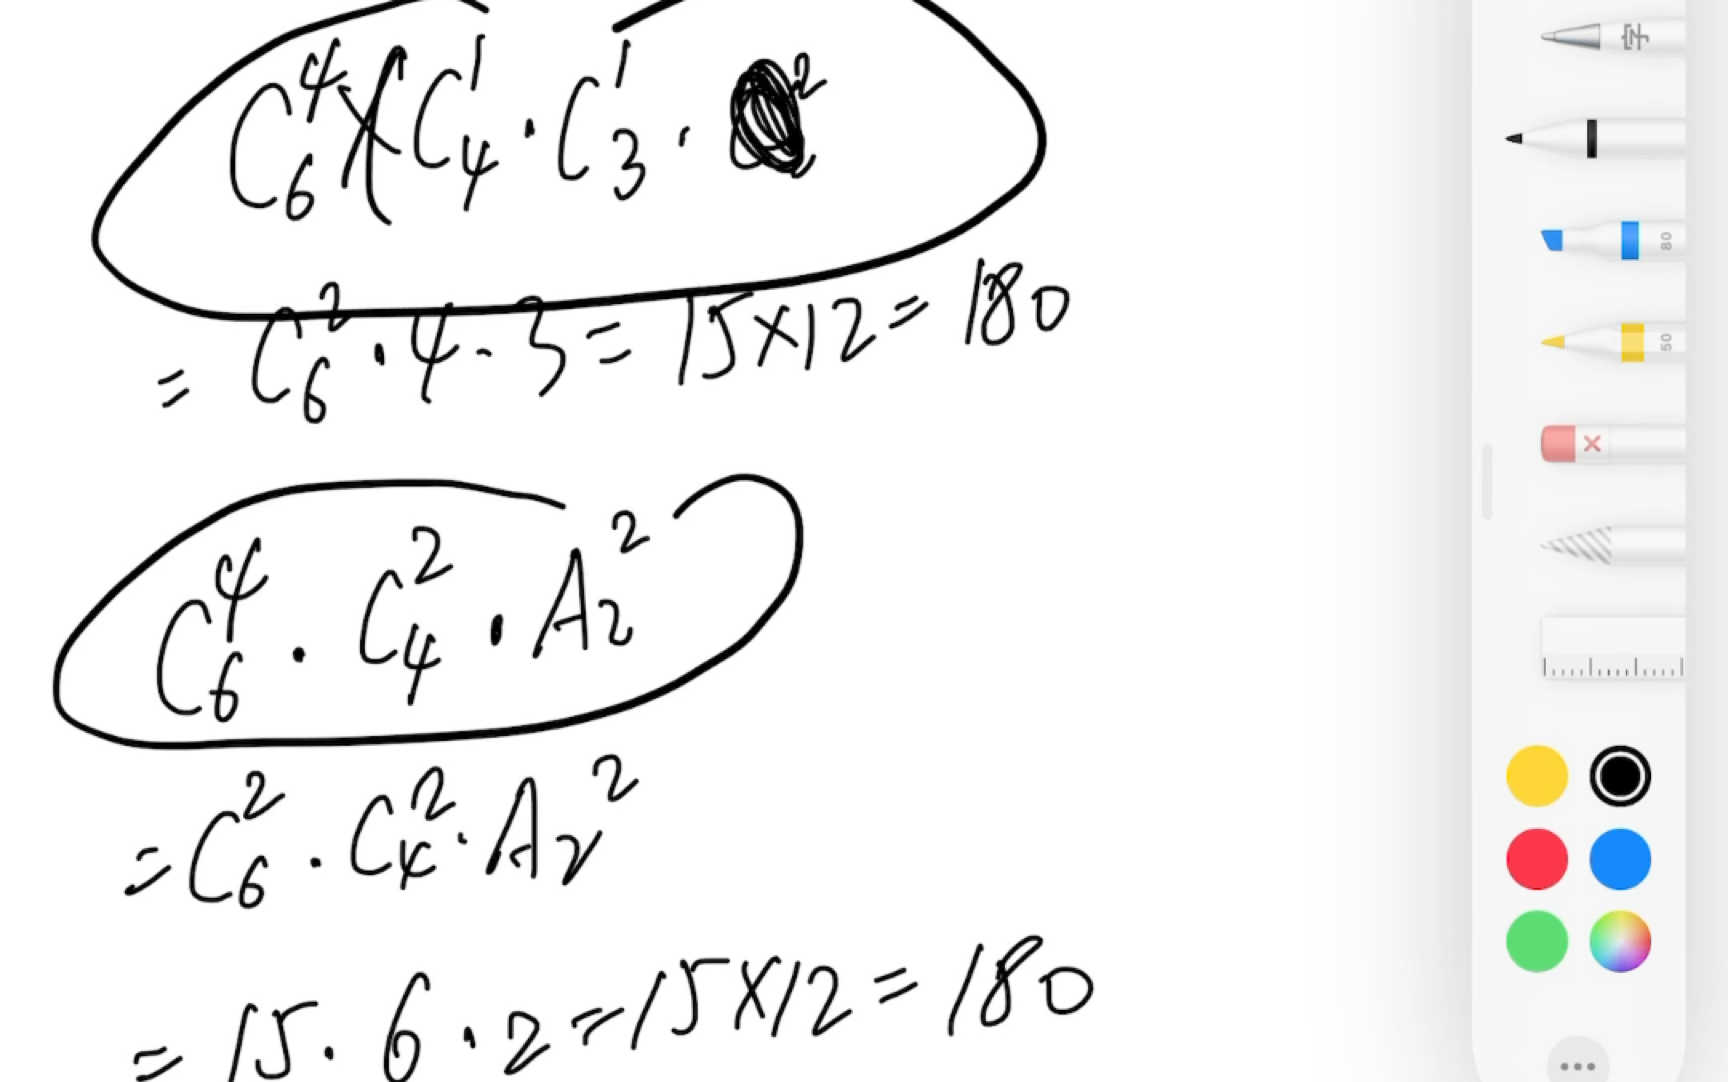 C₆⁴ × ( C₄¹ · C₃¹ · ²
= C₆² · 4 · 3 = 15×12 = 180
C₆⁴ · C₄² · A₂²
= C₆² · C₄² · A₂²
= 15 · 6 · 2 = 15×12 = 180
字
80
50